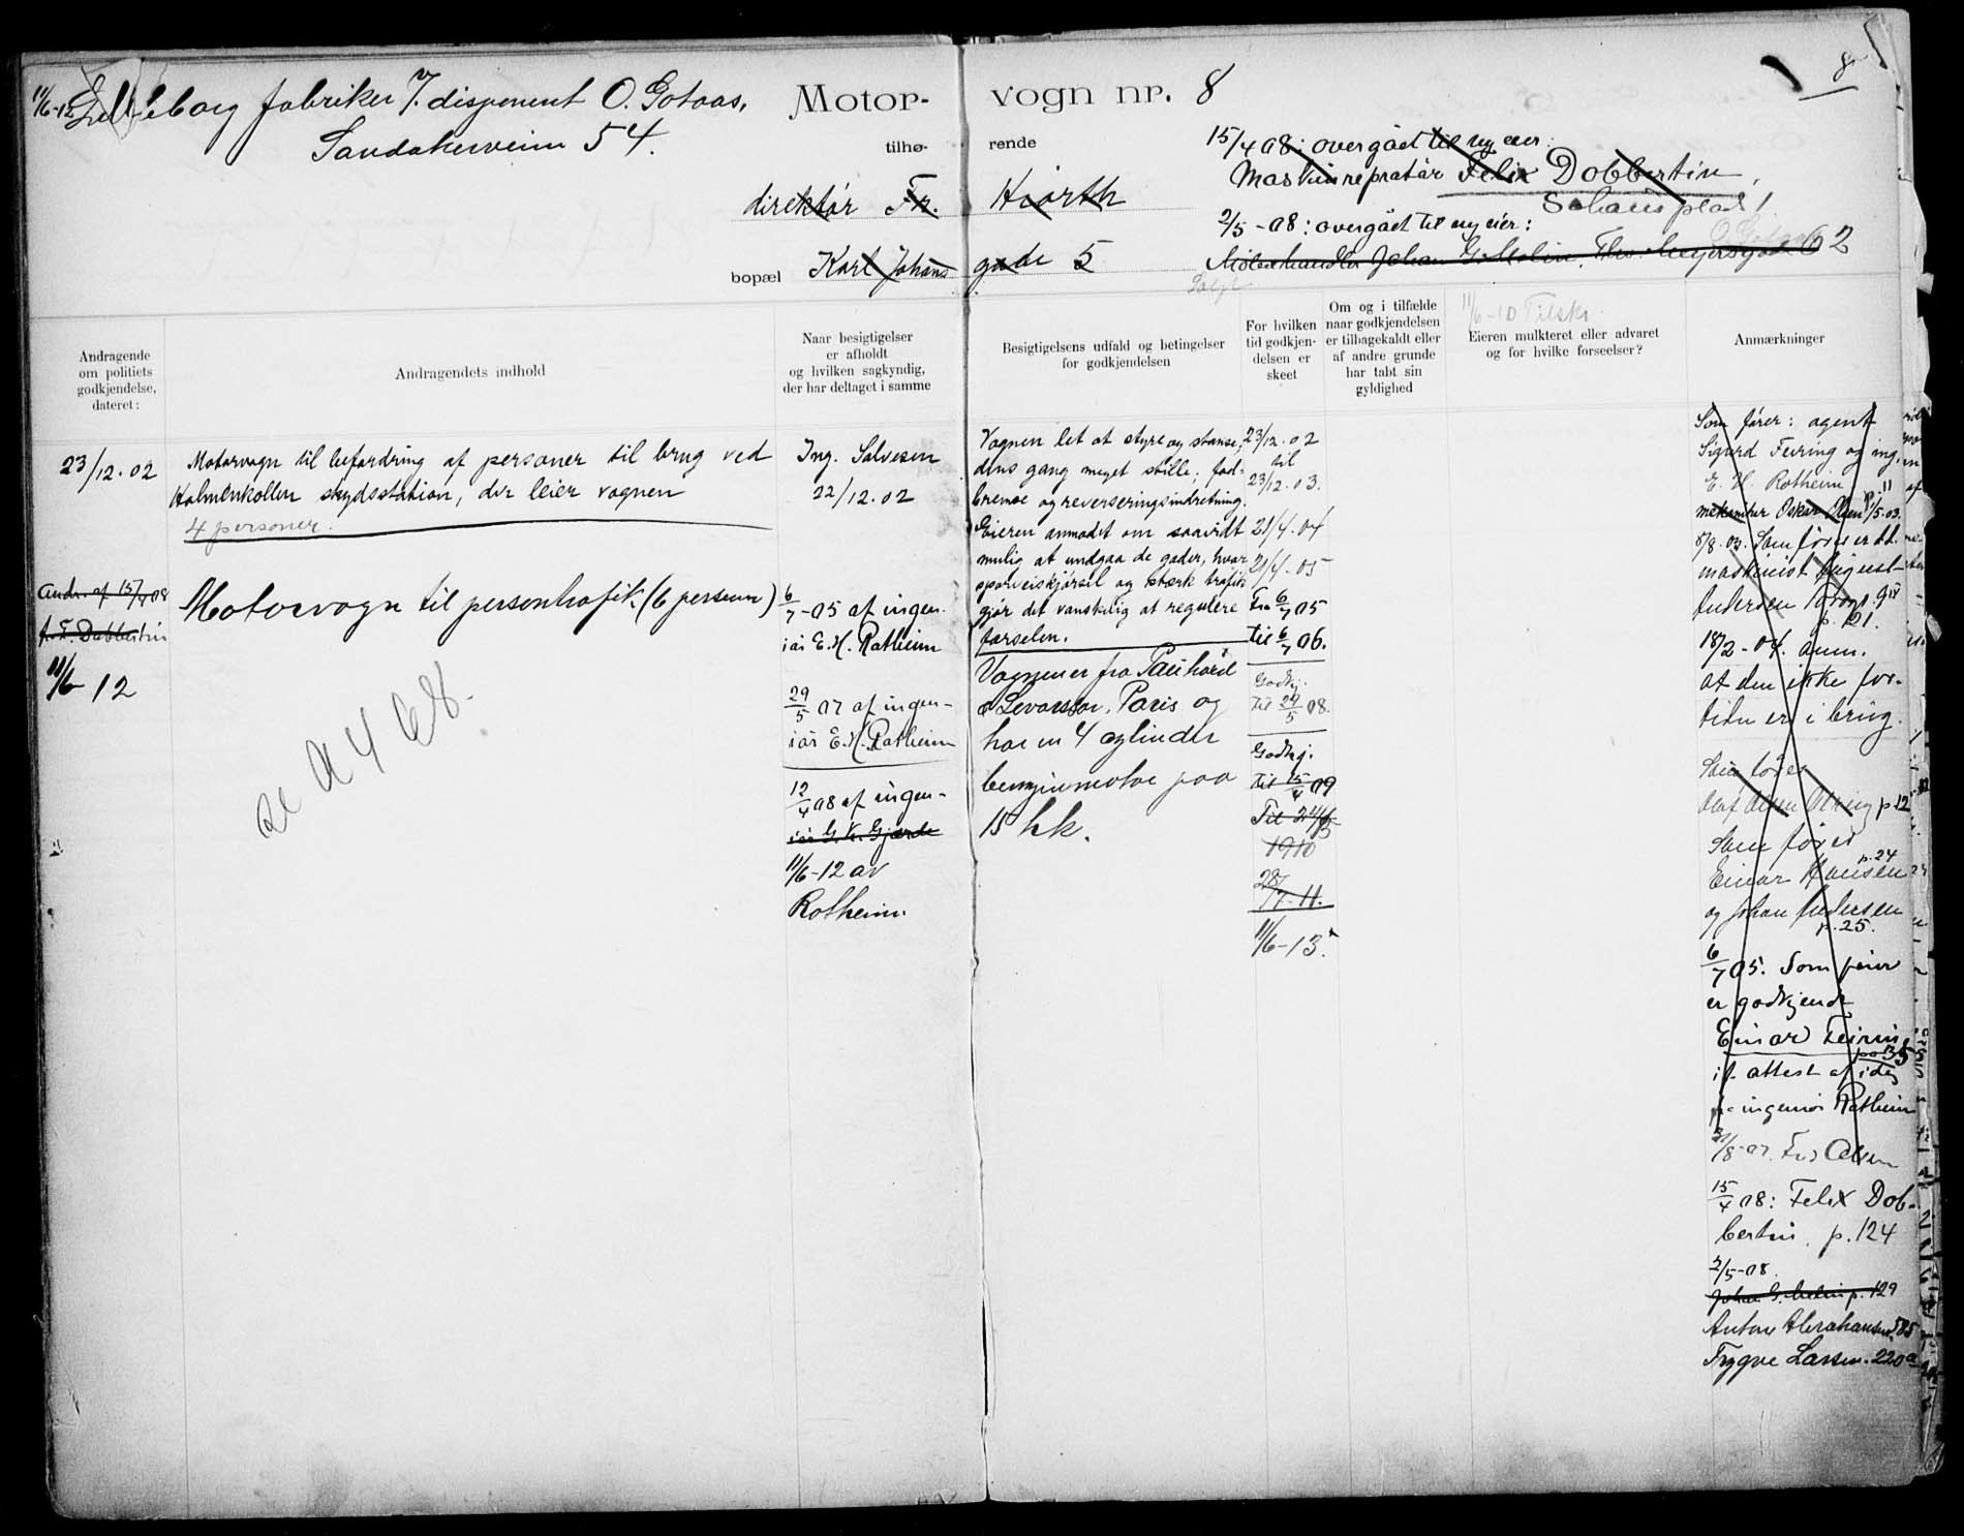 11/6-12 Lilleborg fabriker v/. disponent O. Gotaas,
Sandakerveien 54.
Motor- vogn nr. 8
8
tilhø- rende
direktør Fr. Hiorth
bopæl Karl Johans gade 5
15/4 08: overgået til ny eier:
Maskinrepratør Felix Dobbertin,
Schous plads 1
2/5-08: overgået til ny eier:
Johan G. Melin, Thv. Meyersgade 62
Solgt
11/6-10 Tilskr.
Andragende
om politiets
godkjendelse,
dateret:
Andragendets indhold
Naar besigtigelser
er afholdt
og hvilken sagkyndig,
der har deltaget i samme
Besigtigelsens udfald og betingelser
for godkjendelsen
For hvilken
tid godkjen-
delsen er
skeet
Om og i tilfælde
naar godkjendelsen
er tilbagekaldt eller
af andre grunde
har tabt sin
gyldighed
Eieren mulkteret eller advaret
og for hvilke forseelser?
Anmærkninger
23/12.02
Andr. af 15/4 08
fr. F. Dobbertin
11/6 12
Motorvogn til befordring af personer til brug ved
Holmenkollen skydsstation, der leier vognen
4 personer.
Motorvogn til persontrafik. (6 personer)
A 468.
Ing. Salvesen
22/12.02
6/7-05 af ingen-
iør E. H. Rotheim
29/5 07 af ingen-
iør E. H. Rotheim
12/4 08 af ingen-
iør G. K. Gjærde
11/6-12 av
Rotheim.
Vognen let at styre og stanse,
dens gang meget stille; fod-
bremse og reverseringsindretning.
Eieren anmodet om saavidt
mulig at undgaa de gader, hvor
sporveiskjørsel og stærk trafik
gjør det vanskelig at regulere
færselen.
Vognen er fra Panhard
& Levassor, Paris og
har en 4 cylinder
benzinmotor paa
15 hk.
23/12.02
til
23/12.03.
21/4-04
21/4-05
Fra 6/7 05
til 6/7 06.
Godkj.
til 29/5 08.
Godkj.
til 15/4 09
1910
28/7-11.
11/6-13.
Som fører: agent
Sigurd Feiring og ing.
E. H. Rotheim
p. 11
mekaniker Oskar Olsen 1/5.03.
8/8.03. Som fører er
maskinist August
Andersen
p. 121.
18/2-04. anm.
at den ikke for-
tiden er i brug.
Som fører
Olaf p 12
Som fører
p. 24
Einar Hansen
og Johan Andersen
p. 25.
6/7 05. Som fører
er godkjendt
Einar Feiring
pag 35
if. attest af idag
fr. ingeniør Rotheim
31/8-07. Fr. Olsen
15/4 08: Felix Dob-
bertin. p. 124
2/5-08.
Johan G. Melin p. 129
Anton Abrahamsen 585
Trygve Larsen. 220a